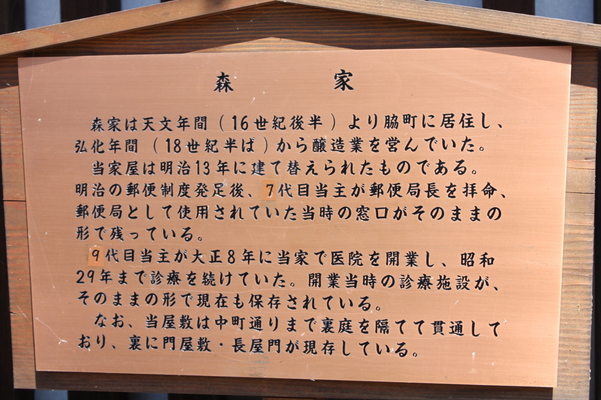 森　家
森家は天文年間（16世紀後半）より脇町に居住し、
弘化年間（18世紀半ば）から醸造業を営んでいた。
当家屋は明治13年に建て替えられたものである。
明治の郵便制度発足後、7代目当主が郵便局長を拝命、
郵便局として使用されていた当時の窓口がそのままの
形で残っている。
9代目当主が大正8年に当家で医院を開業し、昭和
29年まで診療を続けていた。開業当時の診療施設が、
そのままの形で現在も保存されている。
なお、当屋敷は中町通りまで裏庭を隔てて貫通して
おり、裏に門屋敷・長屋門が現存している。